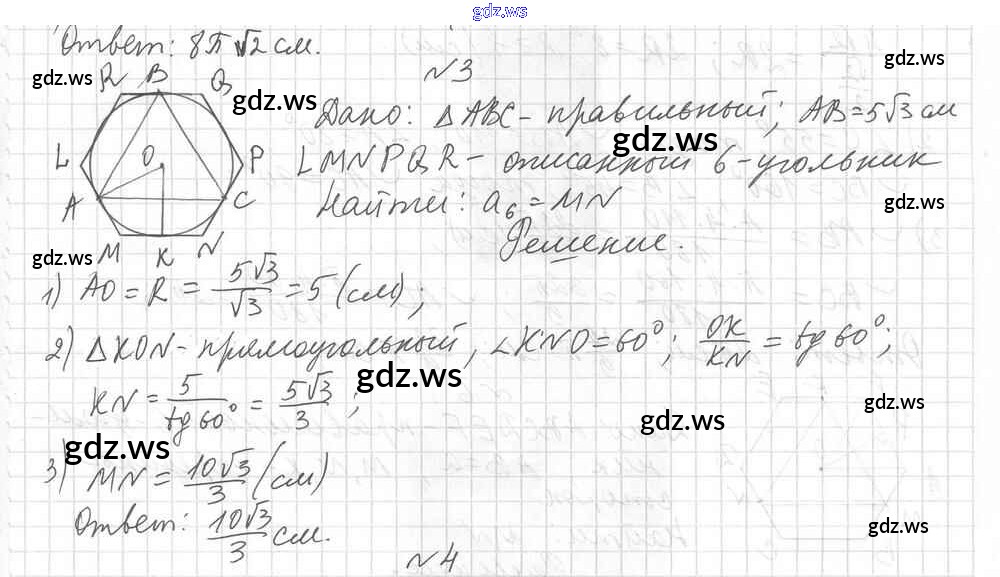 gdz.ws
Ответ: 8π√2 см.
gdz.ws
gdz.ws
N3
R B Q
gdz.ws
Дано: ΔABC - правильный; AB = 5√3 см
gdz.ws
L O P
LMNPQR - описанный 6-угольник
A C
Найти: a₆ = MN
gdz.ws
gdz.ws
M K N
Решение.
1) AO = R = 5√3/√3 = 5 (см);
2) ΔKON - прямоугольный, ∠KNO = 60°; OK/KN = tg 60°;
gdz.ws
KN = 5/tg 60° = 5√3/3;
gdz.ws
gdz.ws
gdz.ws
3) MN = 10√3/3 (см)
Ответ: 10√3/3 см.
gdz.ws
N4